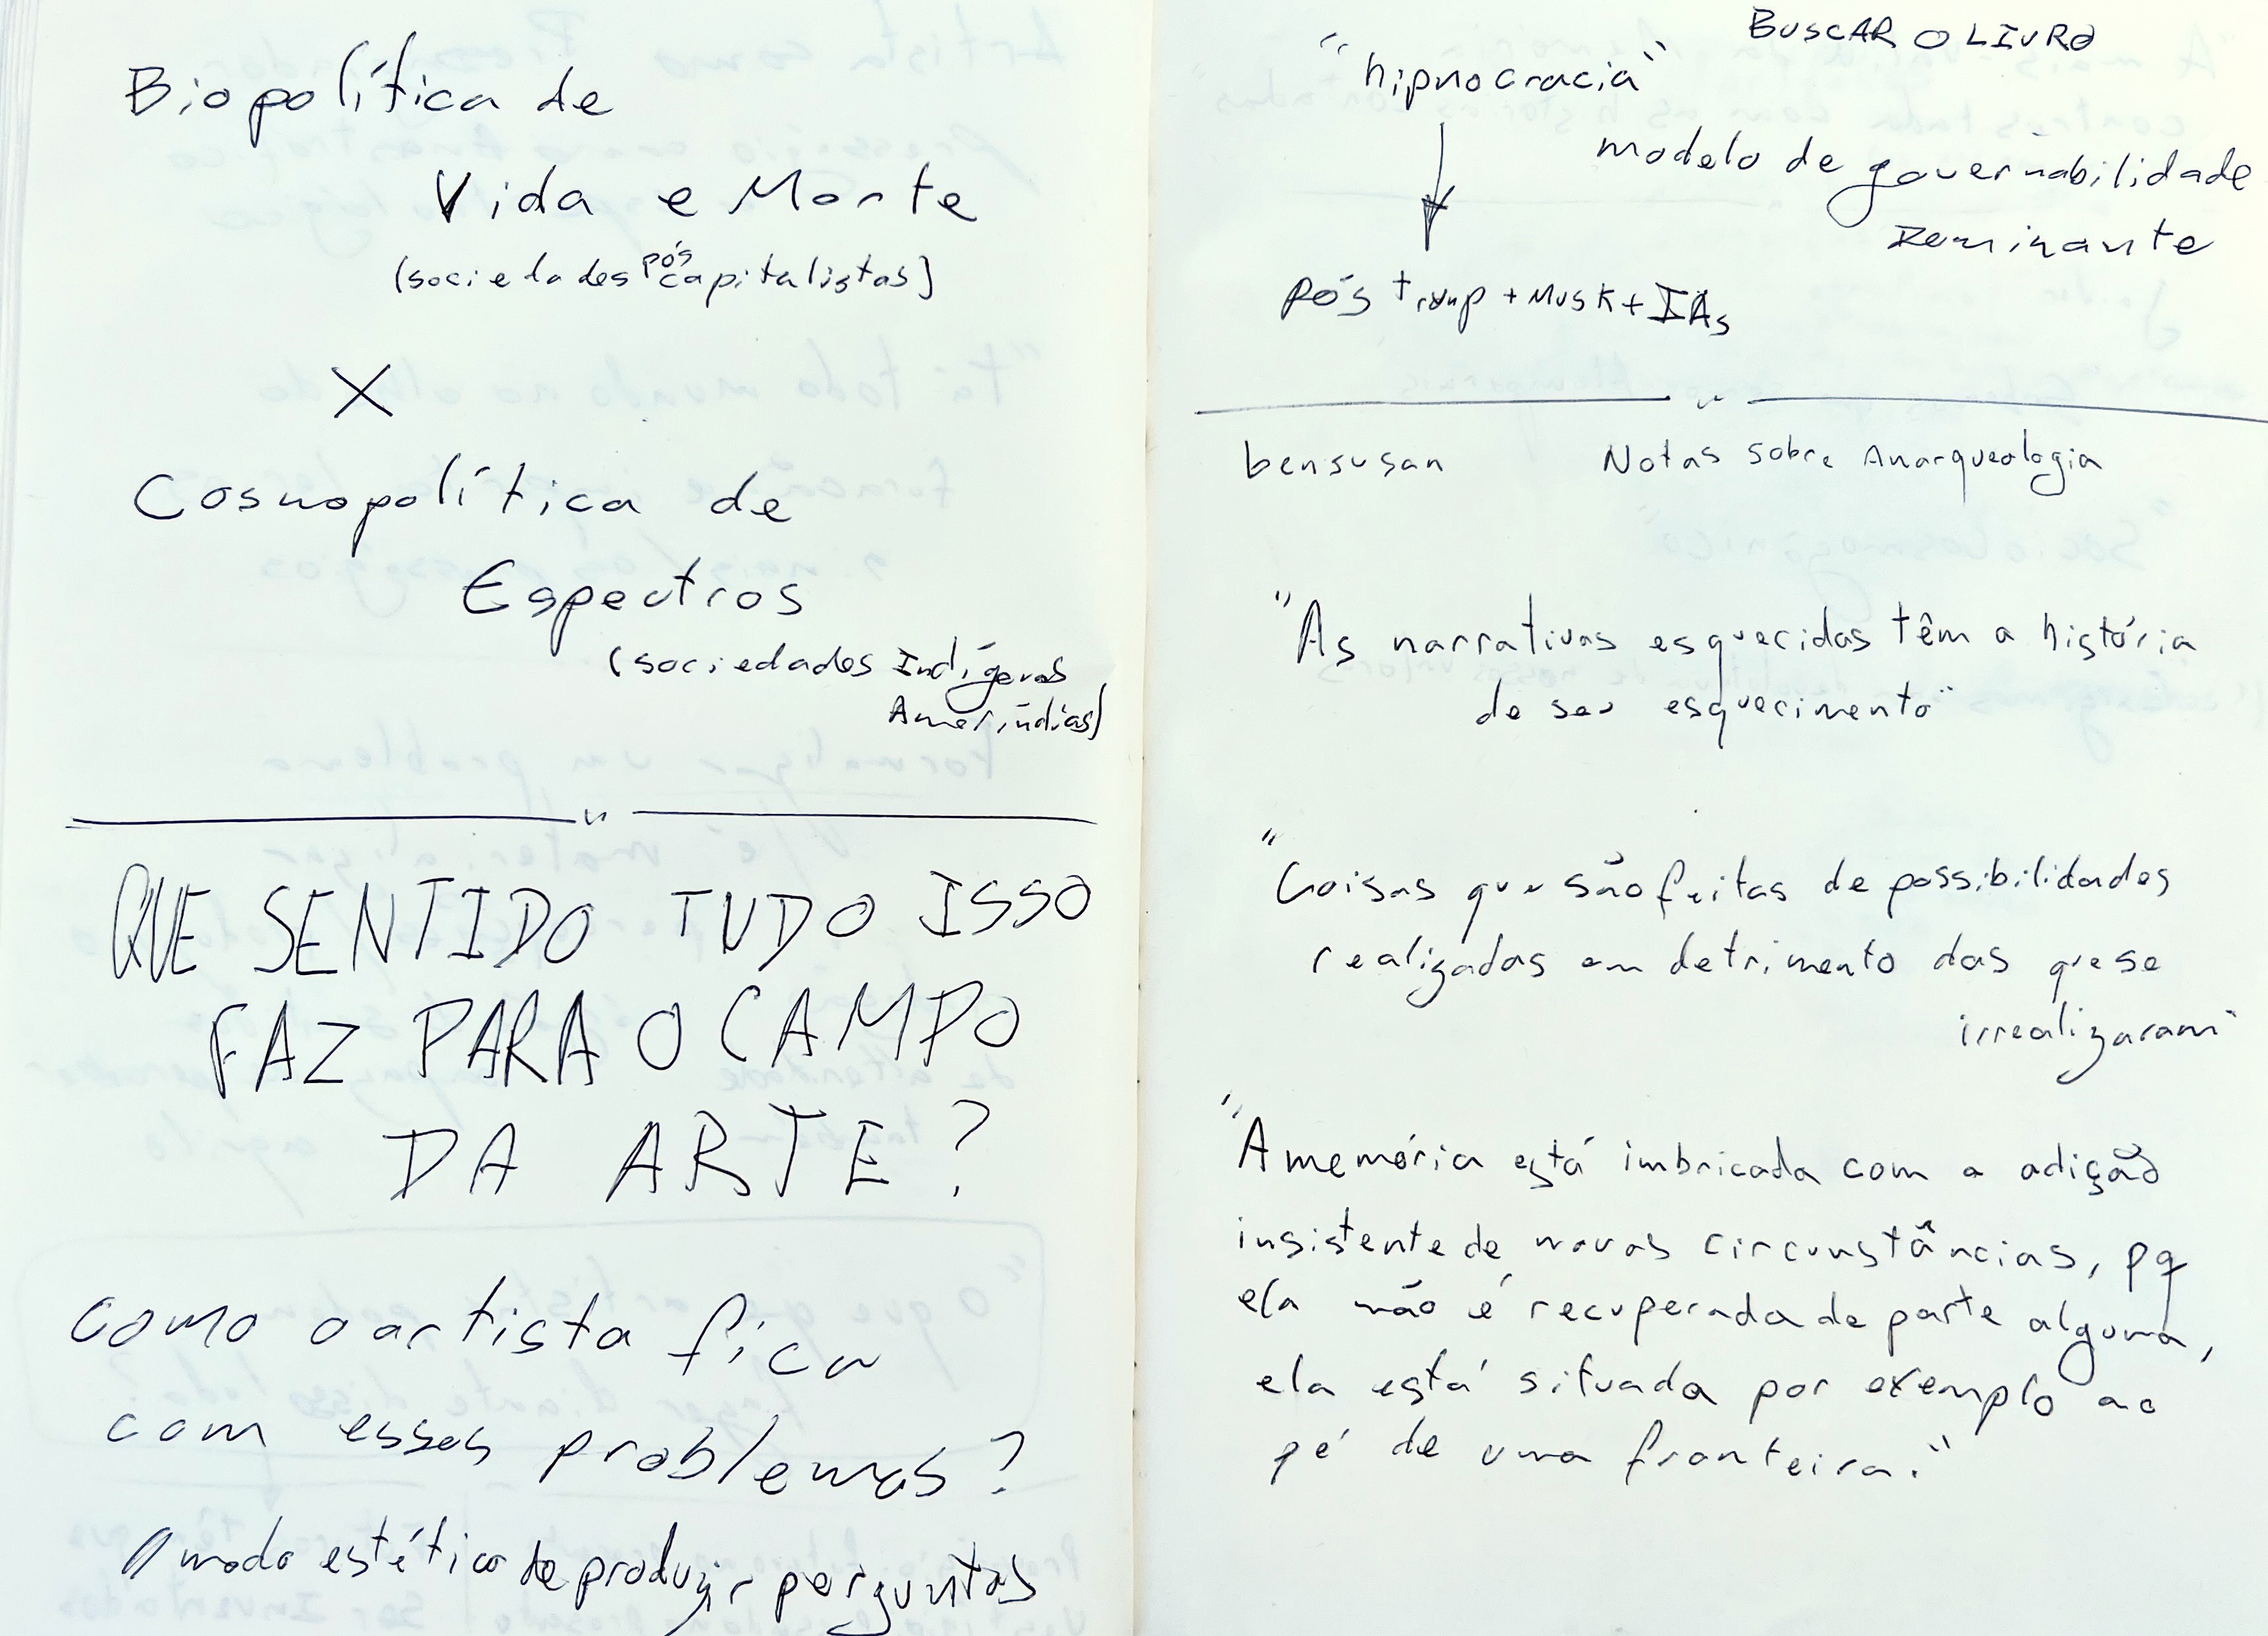 Biopolítica de
Vida e Morte
(sociedades pós capitalistas)
X
Cosmopolítica de
Espectros
(sociedades Indígenas
Ameríndias)
QUE SENTIDO TUDO ISSO
FAZ PARA O CAMPO
DA ARTE?
como o artista fica
com esses problemas?
O modo estético de produzir perguntas
BUSCAR O LIVRO
"hipnocracia"
modelo de governabilidade
Dominante
pós trump + Musk + IAs
bensusan Notas sobre Anarqueologia
"As narrativas esquecidas têm a história
de seu esquecimento"
"Coisas que são feitas de possibilidades
realizadas em detrimento das que se
irrealizaram"
"A memória está imbricada com a adição
insistente de novas circunstâncias, pq
ela não é recuperada de parte alguma,
ela está situada por exemplo ao
pé de uma fronteira."